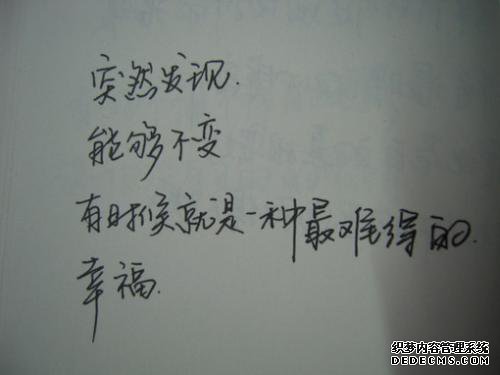 突然发现.
能够不变
有时候就是一种最难得的.
幸福.
织梦内容管理系统
DEDECMS.COM